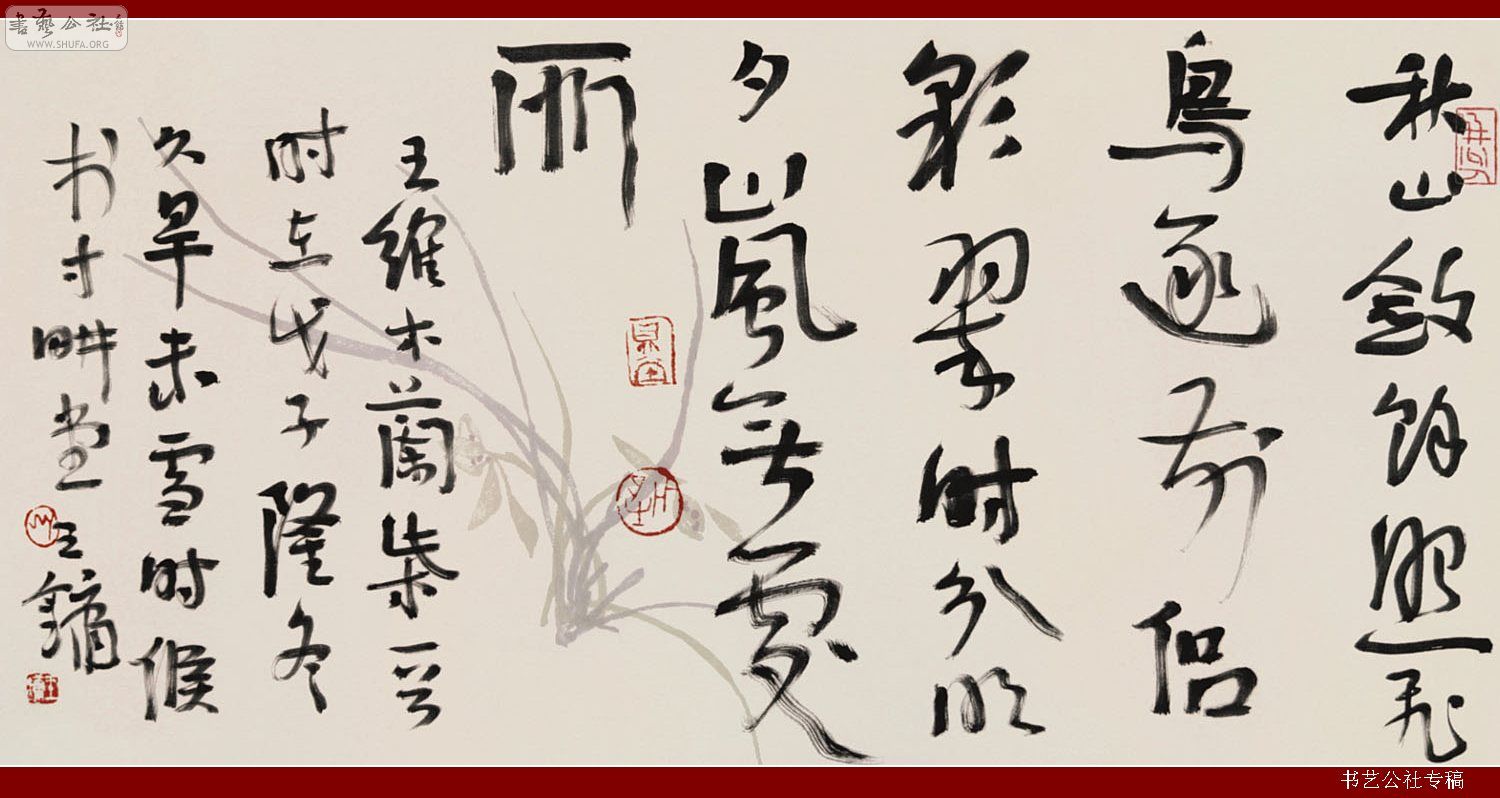 書藝公社
WWW.SHUFA.ORG
秋山斂餘照飛
鳥逐前侣
彩翠时分明
夕嵐無處
所
王維木蘭柴一首
时在戊子隆冬
久旱未雪时候
书寸畊堂 王鏞
书艺公社专稿